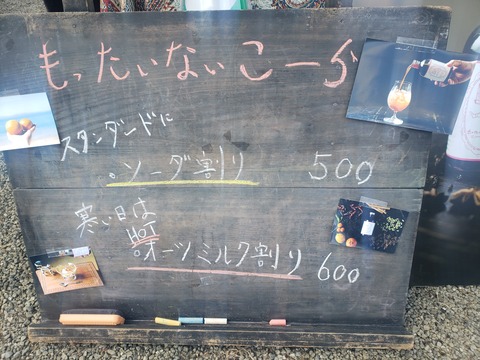 もったいないこーら
スタンダードに
。ソーダ割り 500
寒い日は
HOT
オーツミルク割り 600